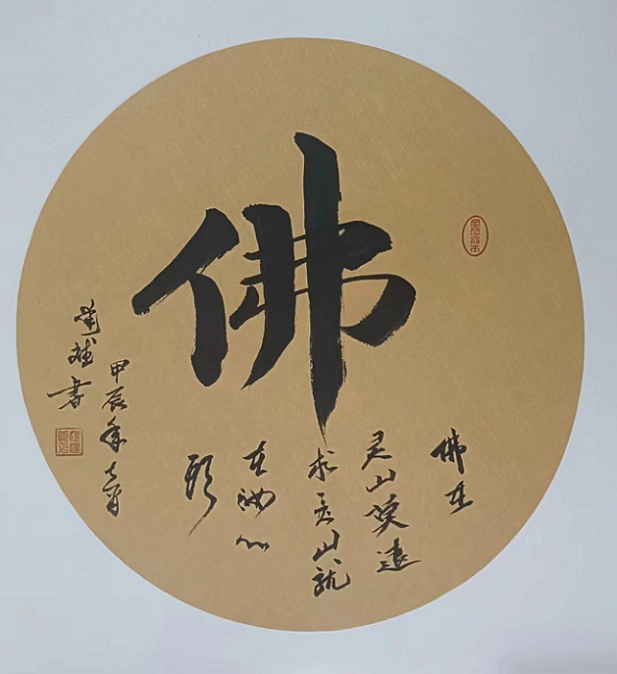 佛
佛在
灵山莫远
求灵山就
在汝心
头
甲辰年
书